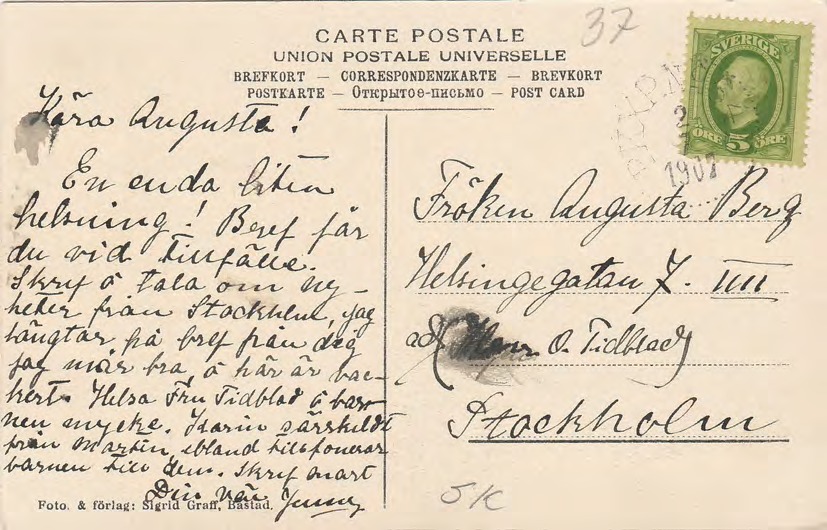 CARTE POSTALE
UNION POSTALE UNIVERSELLE
BREFKORT — CORRESPONDENZKARTE — BREVKORT
POSTKARTE — Открытое-письмо — POST CARD
37
SVERIGE
ÖRE 5 ÖRE
PKXP. N
2
1907
Kära Augusta!
En enda liten
helsning! Bref får
du vid tillfälle.
Skrif å tala om ny-
heter från Stockholm, jag
längtar på bref från dig
jag mår bra, å här är vac-
kert. Helsa Fru Tidblad å bar-
nen mycke. Karin särskildt
från Martin, ibland tillefonerar
barnen till dem. Skrif snart
Din vän Jenny
Foto. & förlag: Sigrid Graff, Båstad.
Fröken Augusta Berg
Helsingegatan 7. IIII
ad/ Herr O. Tidblad/
Stockholm
5K